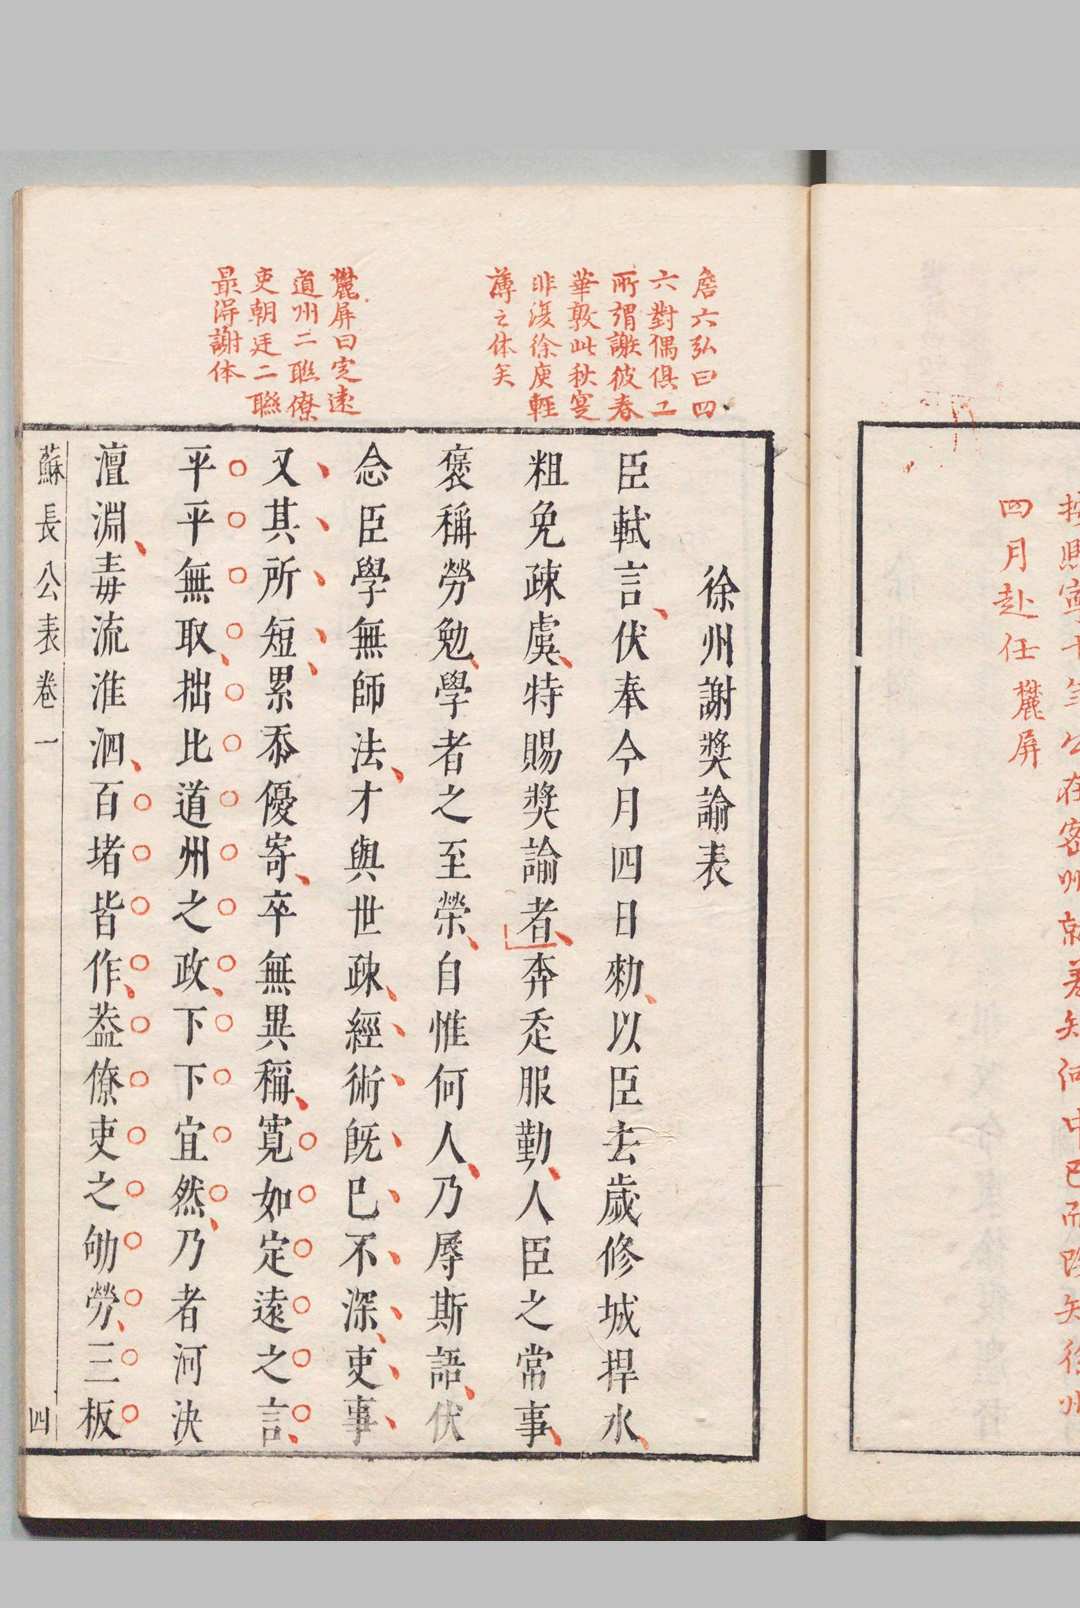 按熙寧十年公在密州就差知河中已而改知徐州
四月赴任 麓屏
詹六弘曰四
六對偶俱工
所謂謝彼春
華敦此秋寔
非復徐庾輕
薄之体矣
麓屏曰定遠
道州二聮僚
吏朝廷二聯
最淂謝体
徐州謝奬諭表
臣軾言伏奉今月四日勑以臣去歲修城捍水
粗免疎虞特賜奬諭者奔走服勤人臣之常事
褒稱勞勉學者之至榮自惟何人乃辱斯語伏
念臣學無師法才與世疎經術旣已不深吏事
又其所短累忝優寄卒無異稱寛如定遠之言
平平無取拙比道州之政下下宜然乃者河決
澶淵毒流淮泗百堵皆作葢僚吏之劬勞三板
蘇長公表卷一 四